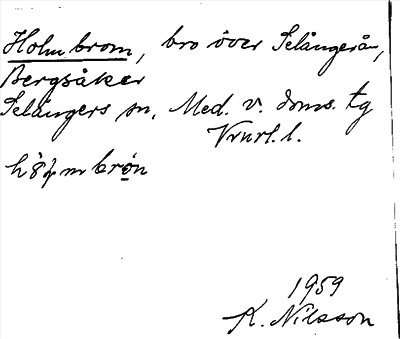 Holm brom, bro över Selångerån,
Bergsåker
Selångers sn, Med. v. doms. tg
Vnrl. l.
bron
1959
K. Nilsson